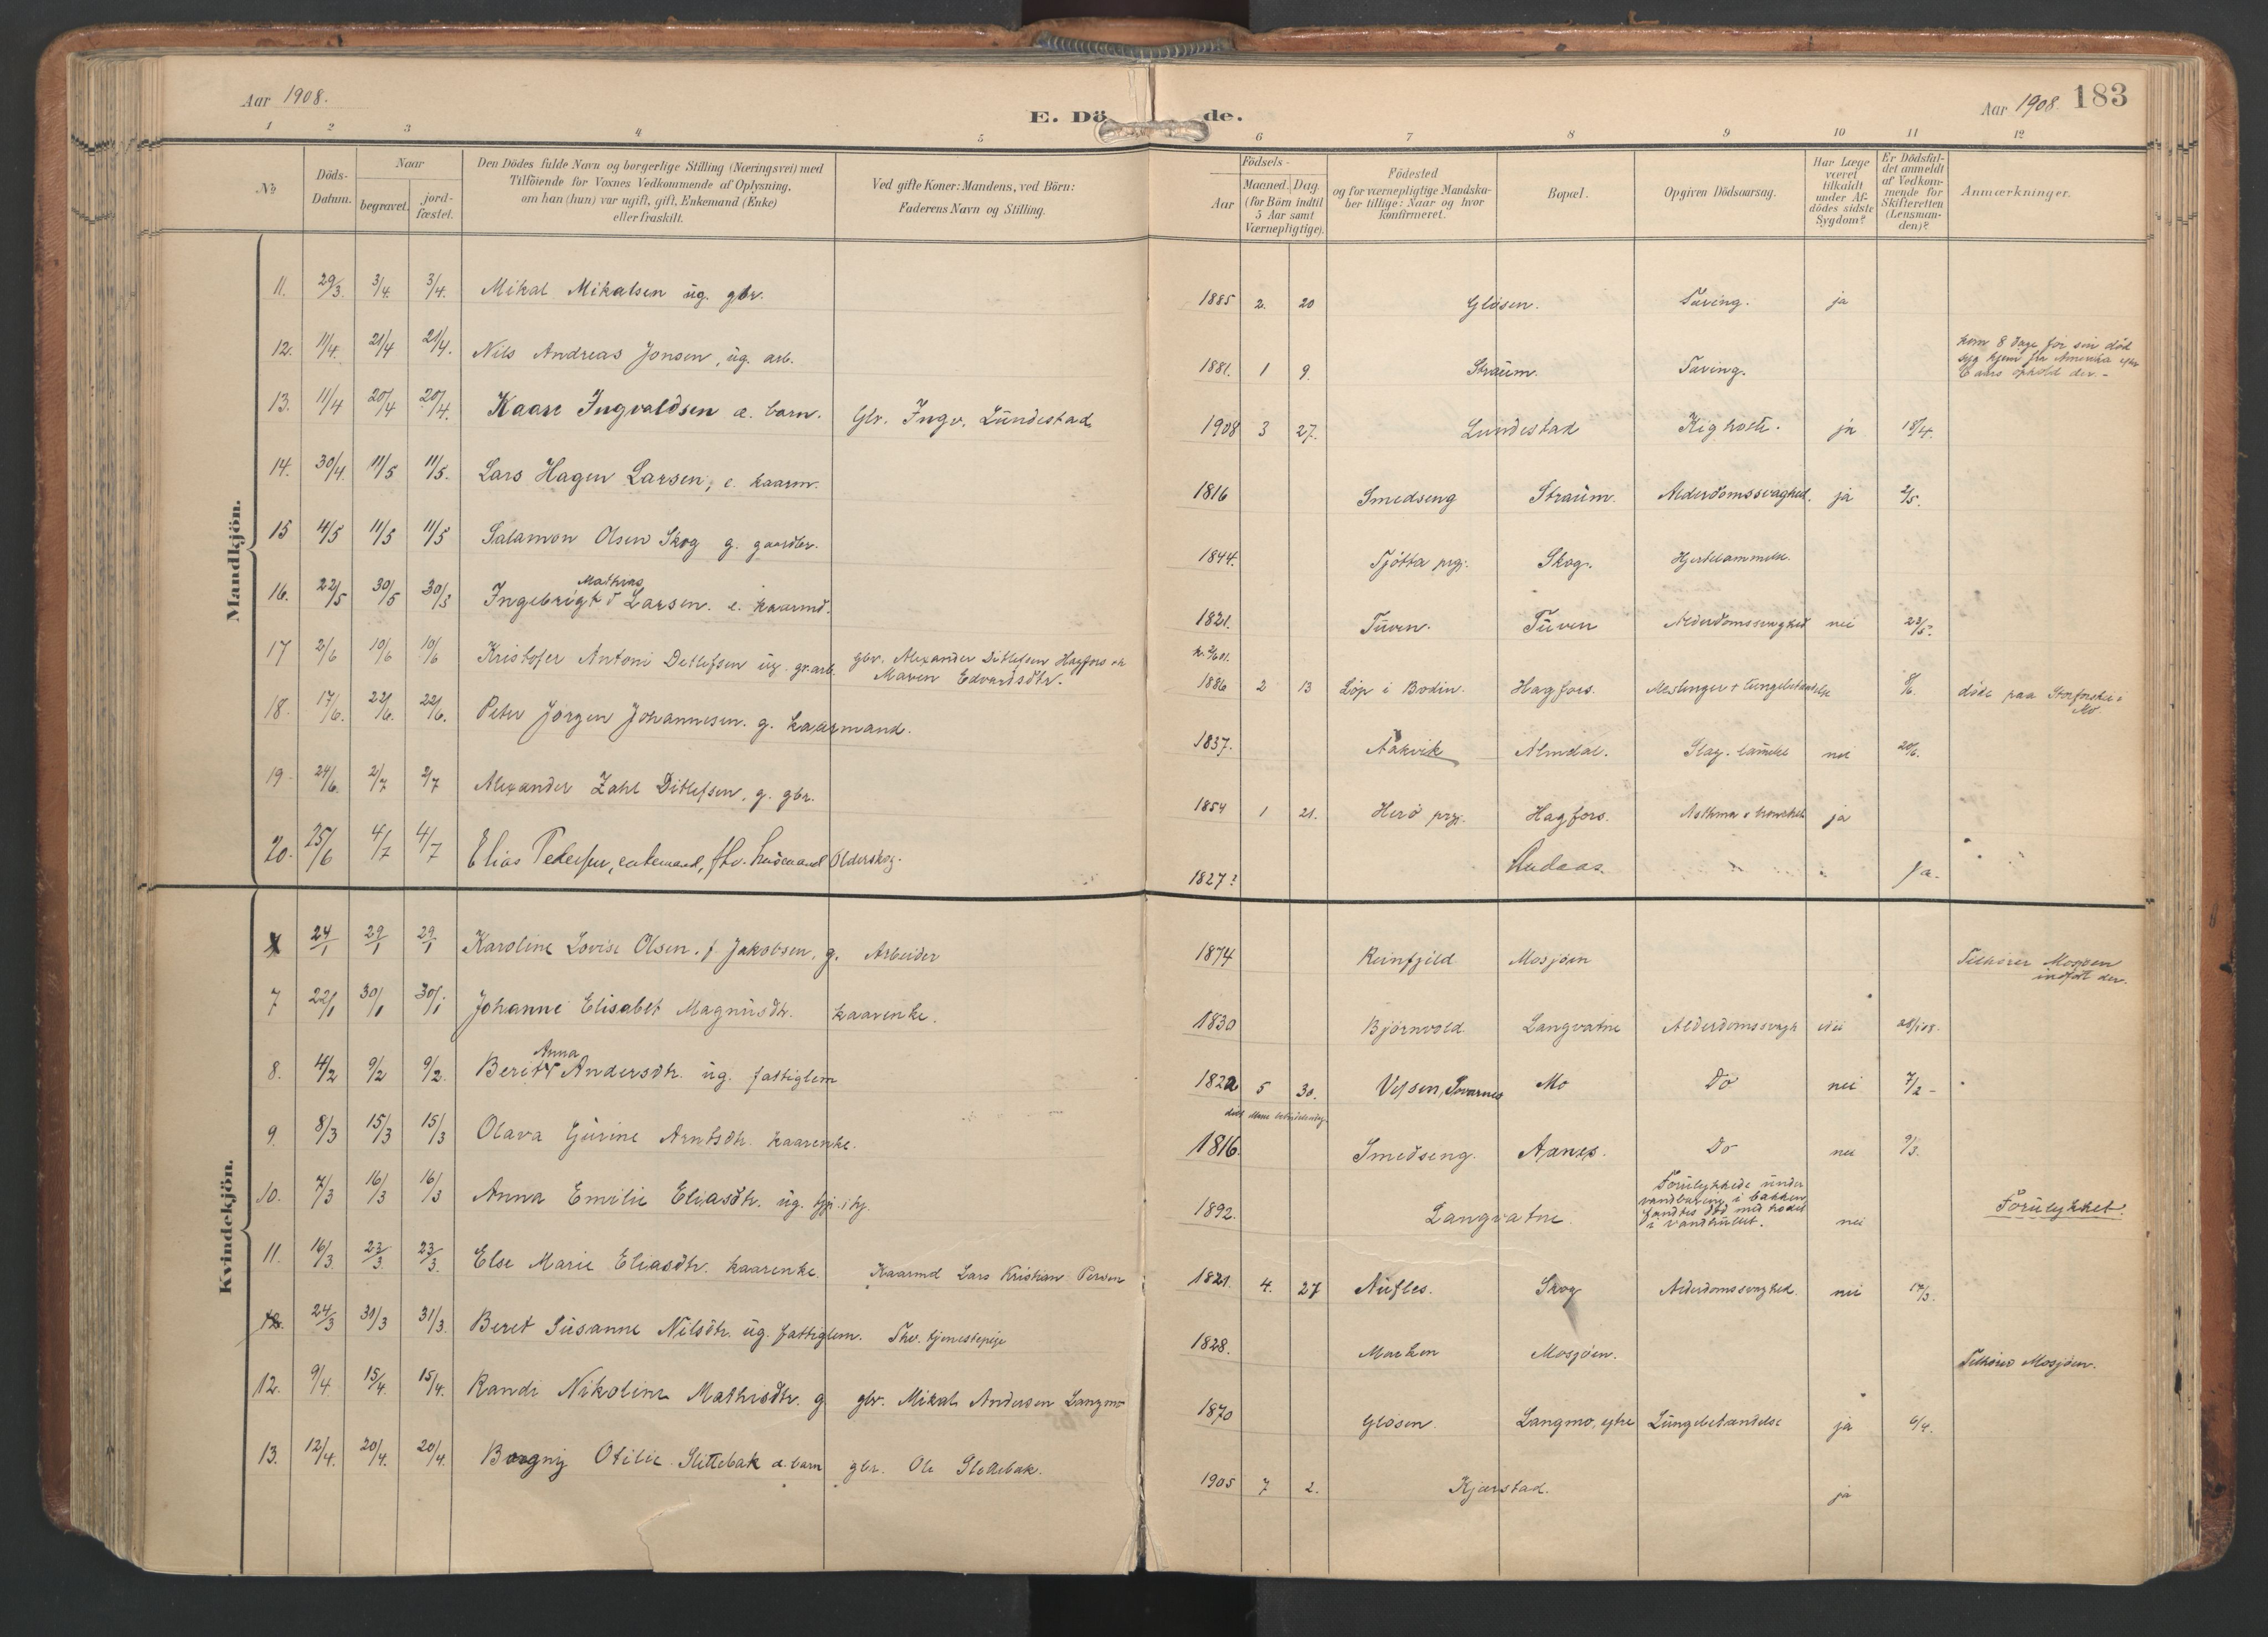 Aar 1908.
E. Dö de.
Aar 1908. 183
1 2 3 4 5 6 7 8 9 10 11 12
No
Döds-Datum.
Naar
begravet.
jord-fæstet.
Den Dödes fulde Navn og borgerlige Stilling (Næringsvei) med
Tilföiende for Voxnes Vedkommende af Oplysning,
om han (hun) var ugift, gift, Enkemand (Enke)
eller fraskilt.
Ved gifte Koner: Mandens, ved Börn:
Faderens Navn og Stilling.
Födsels-
Aar
Maaned. Dag.
(for Börn indtil
5 Aar samt
Værnepligtige).
Födested
og for værnepligtige Mandska-
ber tillige: Naar og hvor
konfirmeret.
Bopæl.
Opgiven Dödsaarsag.
Har Læge
været
tilkaldt
under Af-
dödes sidste
Sygdom?
Er Dödsfal-
det anmeldt
af Vedkom-
mende for
Skifteretten
(Lensman-
den)?
Anmærkninger.
Mandkjön.
11. 29/3. 3/4. 3/4. Mikal Mikalsen ug. gbr. 1885 2. 20 Glösen. Tæring. ja
12. 11/4. 21/4 21/4. Nils Andreas Jonsen, ug. arb. 1881. 1 9. Straum. Tæring. kom 8 dage før sin död
syg hjem fra Amerika efter
6 aars ophold der. -
13. 11/4 20/4 20/4. Kaare Ingvaldsen æ. barn. Gbr. Ingv. Lundestad 1908 3 27. Lundestad Kighoste. ja 18/4.
14. 30/4. 11/5 11/5. Lars Hagen Larsen, e. kaarm. 1816 Smedseng Straum. Alderdomssvaghed. ja 2/5.
15 4/5 11/5 11/5 Salamon Olsen Skog g. gaardbr. 1844. Tjötta prgj. Skog. Hjertelammelse.
16. 22/5 30/5 30/5 Ingebrigt Mathias Larsen. e. kaarmd. 1821. Tuven. Tuven Alderdomssvaghed nei 23/5.
17 2/6 10/6 10/6 Kristofer Antoni Detlefsen ug. gr.arb. gbr. Alexander Ditlefsen Hagfors og
Maren Edvardsdtr. 1886 2 13 Löp i Bodin. Hagfors. Meslinger + lungebetændelse 8/6. döde paa Storforshei i
Mo.
18. 17/6. 22/6. 22/6. Peter Jörgen Johannesen. g. kaarmand. 1837. Aakvik Almdal. Slag. lammelse nei 20/6.
19. 24/6. 2/7 2/7 Alexander Zahl Ditlefsen, g. gbr. 1854 1 21. Herö prgj. Hagfors. Asthma ja
20. 25/6 4/7 4/7 Elias Pedersen, enkemand, fhv. husmand Olderskog. 1827? Andaas. Ja.
Kvindekjön.
24/1 29/1 29/1 Karoline Lovise Olsen. f. Jakobsen, g. Arbeider 1874 Reinfjeld Mosjöen Tilhörer Mosjöen
indfört der.
7 22/1 30/1 30/1 Johanne Elisabet Magnusdtr. kaarenke. 1830 Björnvold. Langvatne Alderdomssvagh nei 28/1 08.
8. 4/2 9/2 9/2. Berit Anna Andersdtr. ug. fattiglem 1822 5 30. Vefsen, Sovarnes Mo Do nei 7/2 -
9. 8/3 15/3 15/3 Olava Gurine Arntsdtr. kaarenke. 1816. Smedseng. Aanes. Do nei 9/3.
10. 7/3 16/3 16/3 Anna Emilie Eliasdtr. ug. tjp. i hj. 1892. Langvatne. Forulykkede under
vandbæring i bakken,
fandtes död med hodet
i vandhullet. nei Forulykket.
11. 16/3. 23/3. 23/3. Else Marie Eliasdtr. kaarenke. Kaarmd Lars Kristian Person 1821. 4. 27 Nufles. Skog Alderdomssvaghed. nei 17/3.
24/3 31/3 31/3. Beret Susanne Nilsdtr. ug. fattiglem. Fhv. tjenestepige 1828. Marken Mosjöen. Tilhörer Mosjöen.
12. 9/4. 15/4. 15/4. Randi Nikoline Mathisdtr. g gbr. Mikal Andersen Langmo 1870 Glösen. Langmo, ytre Lungebetændelse ja 6/4.
13. 12/4. 20/4. 20/4. Borgny Otilie Slettebak æ. barn gbr. Ole Slettebak. 1905 7 2. Kjærstad. ja